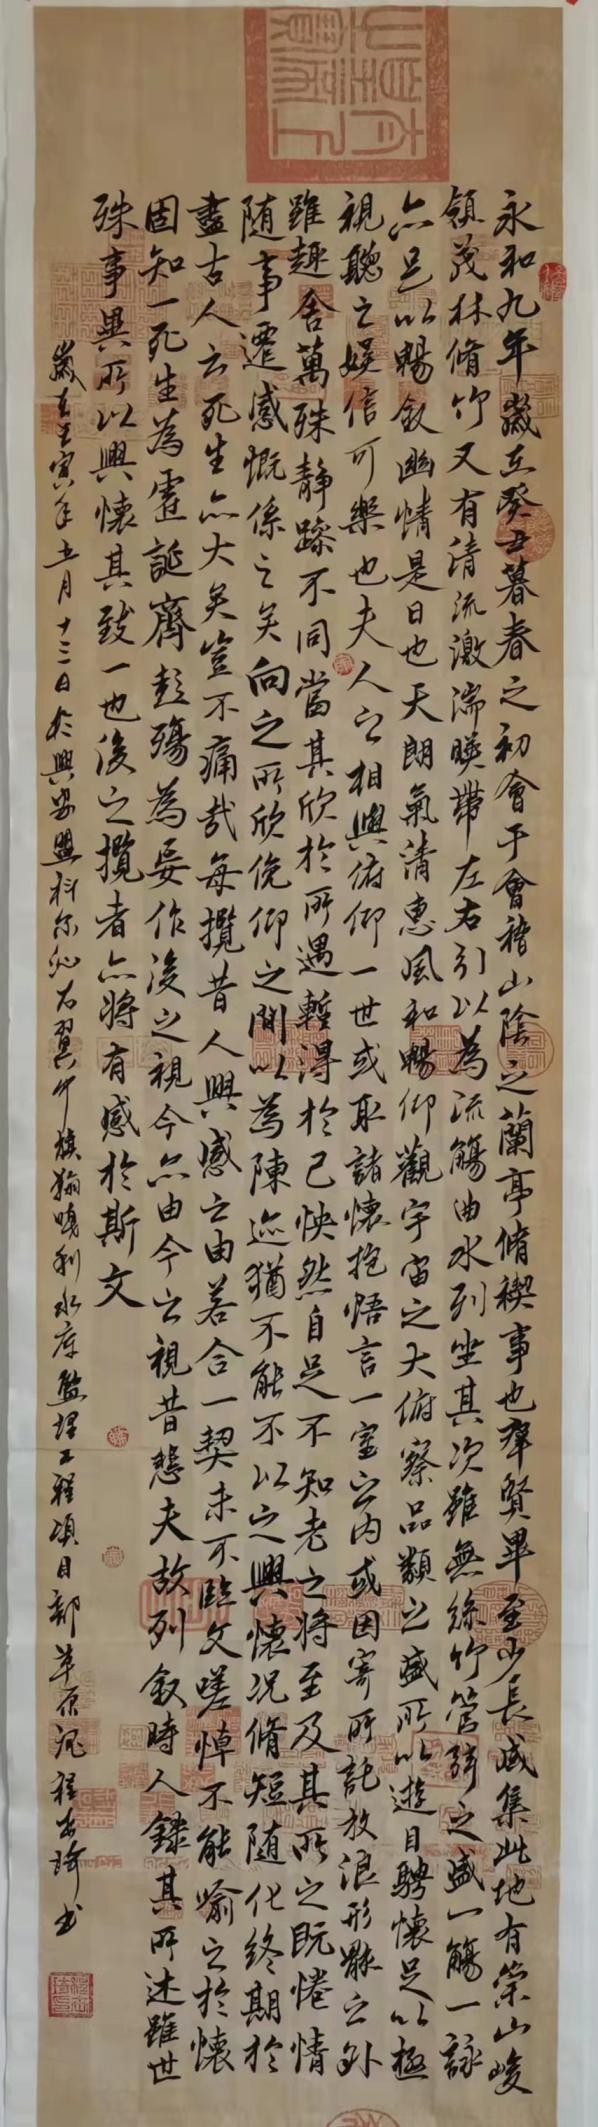 永和九年歲在癸丑暮春之初會于會稽山陰之蘭亭脩禊事也羣賢畢至少長咸集此地有崇山峻
領茂林脩竹又有清流激湍暎帶左右引以為流觴曲水列坐其次雖無絲竹管弦之盛一觴一詠
亦足以暢敘幽情是日也天朗氣清惠風和暢仰觀宇宙之大俯察品類之盛所以遊目騁懷足以極
視聽之娛信可樂也夫人之相與俯仰一世或取諸懷抱悟言一室之內或因寄所託放浪形骸之外
雖趣舍萬殊靜躁不同當其欣於所遇暫得於己怏然自足不知老之將至及其所之既惓情
隨事遷感慨係之矣向之所欣俛仰之間以為陳迹猶不能不以之興懷況脩短隨化終期於
盡古人云死生亦大矣豈不痛哉每攬昔人興感之由若合一契未不臨文嗟悼不能喻之於懷
固知一死生為虛誕齊彭殤為妄作後之視今亦由今之視昔悲夫故列敘時人錄其所述雖世
殊事異所以興懷其致一也後之攬者亦將有感於斯文
歲在壬寅年五月十三日於興安盟科尔沁右翼中旗翰嘎利水库監理工程項目部草原